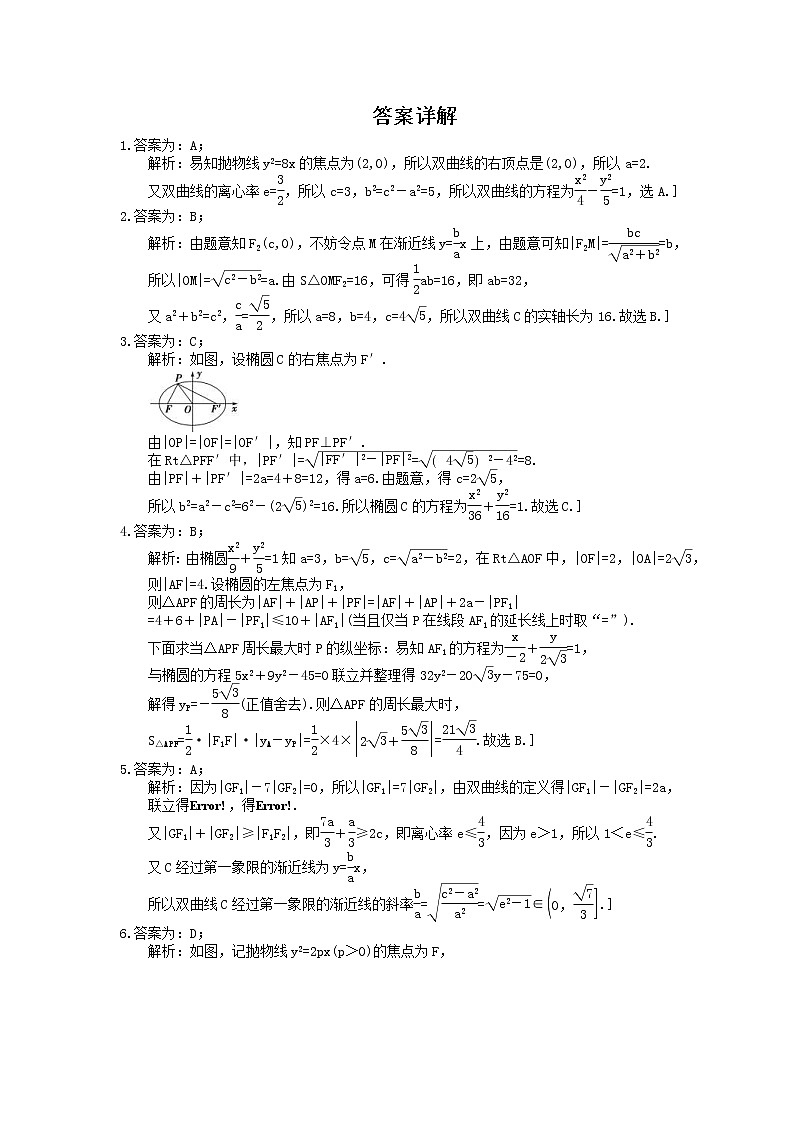 答案详解
1.答案为：A；
解析：易知抛物线y²=8x的焦点为(2,0)，所以双曲线的右顶点是(2,0)，所以a=2.
又双曲线的离心率e=3/2，所以c=3，b²=c²－a²=5，所以双曲线的方程为x²/4－y²/5=1，选A.]
2.答案为：B；
解析：由题意知F₂(c,0)，不妨令点M在渐近线y=b/a x上，由题意可知|F₂M|=bc/√(a²＋b²)=b，
所以|OM|=√(c²－b²)=a.由S△OMF₂=16，可得1/2ab=16，即ab=32，
又a²＋b²=c²，c/a=√5/2，所以a=8，b=4，c=4√5，所以双曲线C的实轴长为16.故选B.]
3.答案为：C；
解析：如图，设椭圆C的右焦点为F′.
P y
F O F′ x
由|OP|=|OF|=|OF′|，知PF⊥PF′.
在Rt△PFF′中，|PF′|=√(|FF′|²－|PF|²)=√(( 4√5) ²－4²)=8.
由|PF|＋|PF′|=2a=4＋8=12，得a=6.由题意，得c=2√5，
所以b²=a²－c²=6²－(2√5)²=16.所以椭圆C的方程为x²/36＋y²/16=1.故选C.]
4.答案为：B；
解析：由椭圆x²/9＋y²/5=1知a=3，b=√5，c=√(a²－b²)=2，在Rt△AOF中，|OF|=2，|OA|=2√3，
则|AF|=4.设椭圆的左焦点为F₁，
则△APF的周长为|AF|＋|AP|＋|PF|=|AF|＋|AP|＋2a－|PF₁|
=4＋6＋|PA|－|PF₁|≤10＋|AF₁|(当且仅当P在线段AF₁的延长线上时取“=”).
下面求当△APF周长最大时P的纵坐标：易知AF₁的方程为x/－2＋y/2√3=1，
与椭圆的方程5x²＋9y²－45=0联立并整理得32y²－20√3y－75=0，
解得yP=－5√3/8(正值舍去).则△APF的周长最大时，
S△APF=1/2·|F₁F|·|yA－yP|=1/2×4×|2√3＋5√3/8|=21√3/4.故选B.]
5.答案为：A；
解析：因为|GF₁|－7|GF₂|=0，所以|GF₁|=7|GF₂|，由双曲线的定义得|GF₁|－|GF₂|=2a，
联立得Error!，得Error!.
又|GF₁|＋|GF₂|≥|F₁F₂|，即7a/3＋a/3≥2c，即离心率e≤4/3，因为e＞1，所以1＜e≤4/3.
又C经过第一象限的渐近线为y=b/a x，
所以双曲线C经过第一象限的渐近线的斜率b/a=√((c²－a²)/a²)=√(e²－1)∈(0，√7/3].]
6.答案为：D；
解析：如图，记抛物线y²=2px(p＞0)的焦点为F，